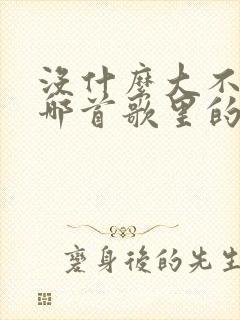 沒什麼大不
哪首歌里的
麼身後的先生